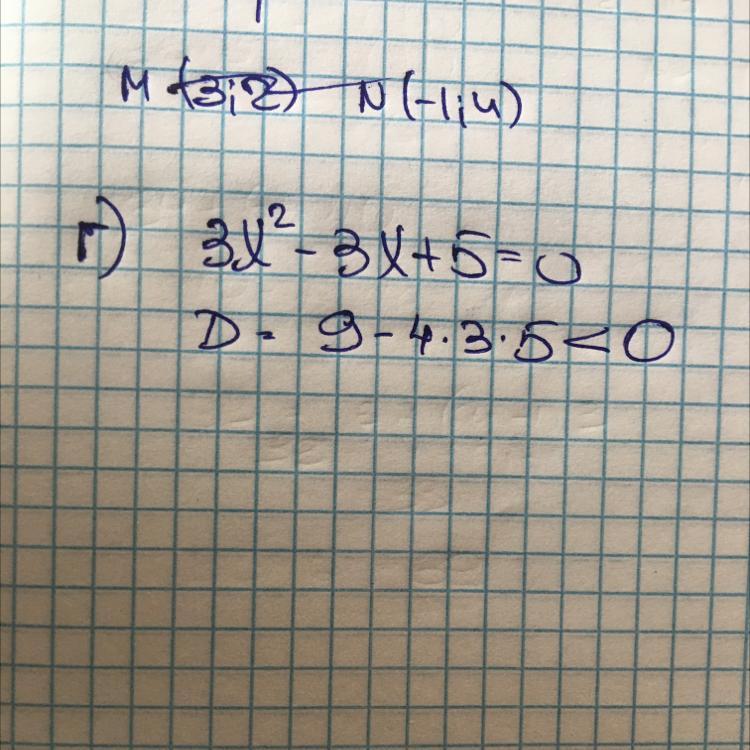 M (3;2) N (-1;4)
г) 3x² - 3x + 5 = 0
D = 9 - 4·3·5 < 0